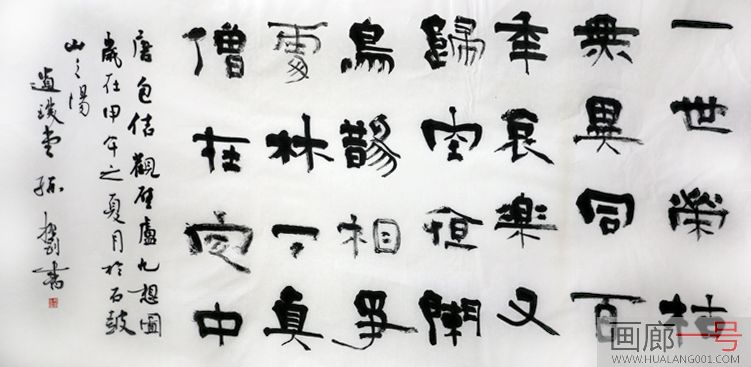 一世榮枯
無異同百
年哀樂又
歸空夜闌
鳥鵲相爭
處林下真
僧在定中
唐包佶觀壁盧九想圖
歲在甲午之夏月於石鼓
山之陽
堂 孫 書
画廊一号
WWW.HUALANG001.COM